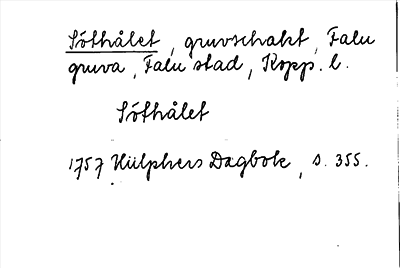 Sóthålet, gruvschakt, Falu
gruva, Falu stad, Kopp. l.
Sóthålet
1757 Hülphers Dagbok, s. 355.